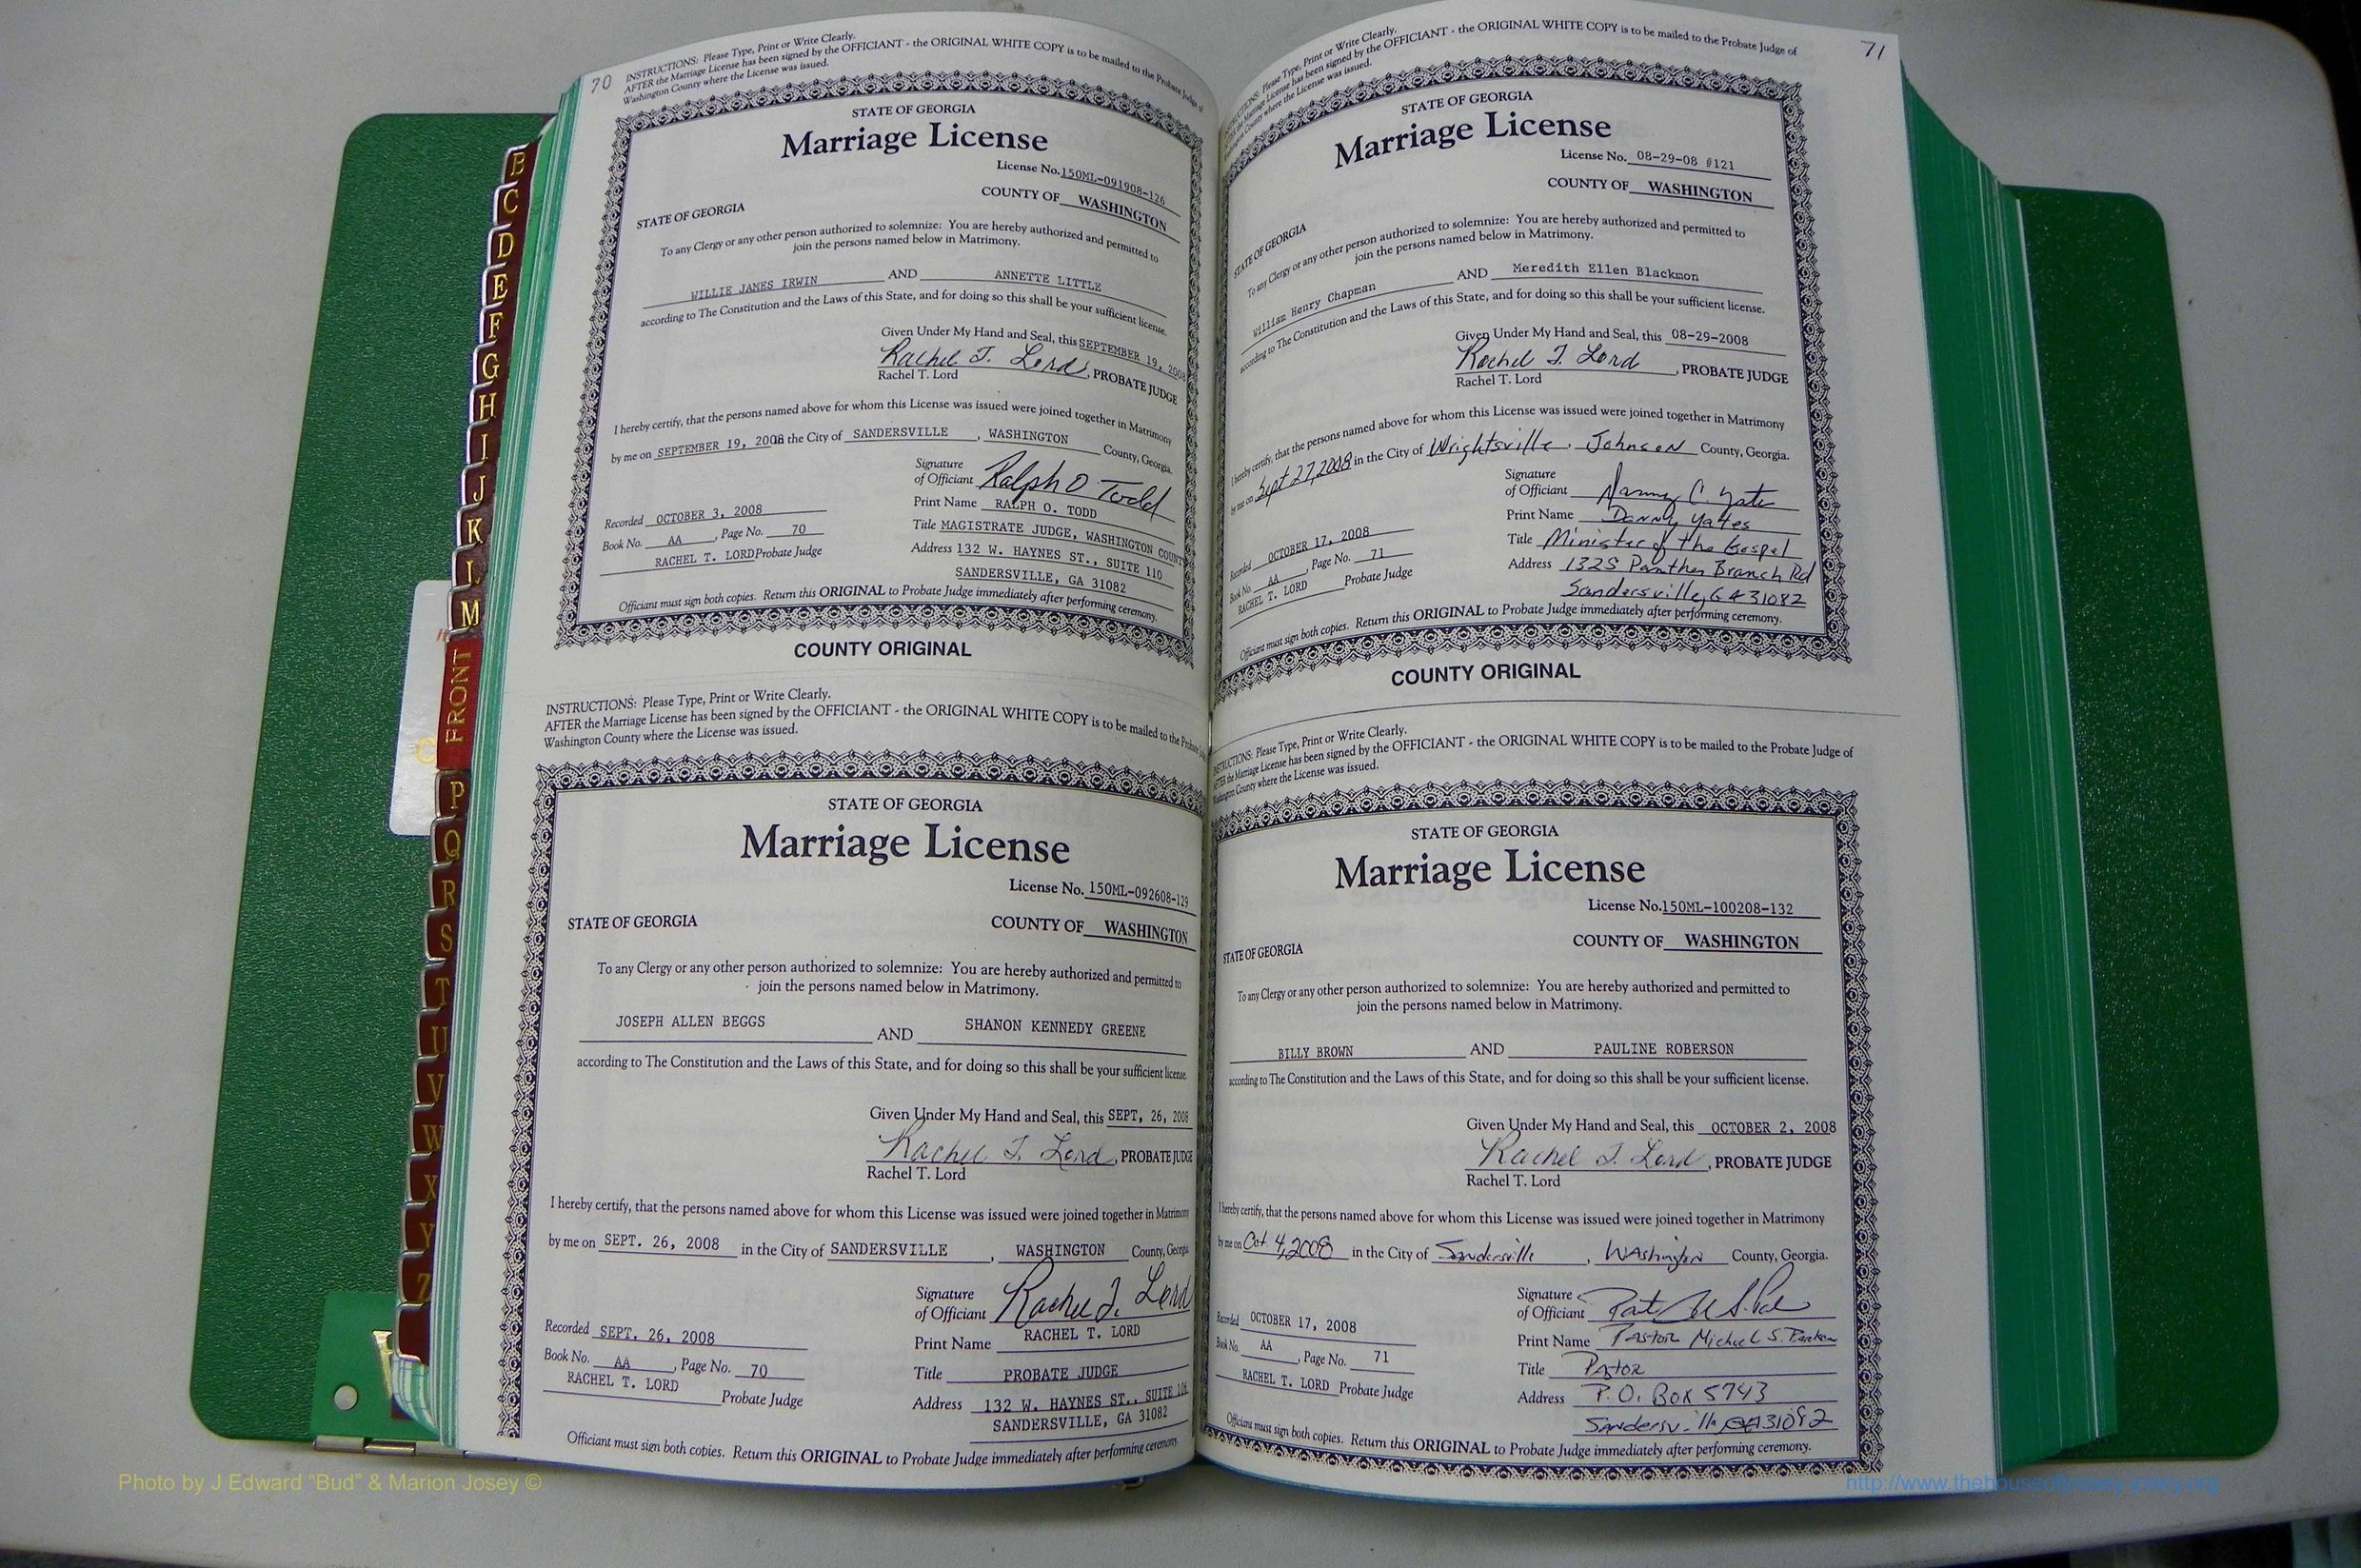 70
INSTRUCTIONS: Please Type, Print or Write Clearly.
AFTER the Marriage License has been signed by the OFFICIANT - the ORIGINAL WHITE COPY is to be mailed to the Probate Judge of
Washington County where the License was issued.
STATE OF GEORGIA
Marriage License
License No. 150ML-091908-126
COUNTY OF WASHINGTON
STATE OF GEORGIA
To any Clergy or any other person authorized to solemnize: You are hereby authorized and permitted to
join the persons named below in Matrimony.
WILLIE JAMES IRWIN AND ANNETTE LITTLE
according to The Constitution and the Laws of this State, and for doing so this shall be your sufficient license.
Given Under My Hand and Seal, this SEPTEMBER 19, 2008
Rachel T. Lord, PROBATE JUDGE
Rachel T. Lord
I hereby certify, that the persons named above for whom this License was issued were joined together in Matrimony
by me on SEPTEMBER 19, 2008 the City of SANDERSVILLE, WASHINGTON County, Georgia.
Signature
of Officiant Ralph O Todd
Print Name RALPH O. TODD
Title MAGISTRATE JUDGE, WASHINGTON COUNTY
Address 132 W. HAYNES ST., SUITE 110
SANDERSVILLE, GA 31082
Recorded OCTOBER 3, 2008
Book No. AA, Page No. 70
RACHEL T. LORD Probate Judge
Officiant must sign both copies. Return this ORIGINAL to Probate Judge immediately after performing ceremony.
COUNTY ORIGINAL
INSTRUCTIONS: Please Type, Print or Write Clearly.
AFTER the Marriage License has been signed by the OFFICIANT - the ORIGINAL WHITE COPY is to be mailed to the Probate
Washington County where the License was issued.
STATE OF GEORGIA
Marriage License
License No. 150ML-092608-129
STATE OF GEORGIA
COUNTY OF WASHINGTON
To any Clergy or any other person authorized to solemnize: You are hereby authorized and permitted to
join the persons named below in Matrimony.
JOSEPH ALLEN BEGGS AND SHANON KENNEDY GREENE
according to The Constitution and the Laws of this State, and for doing so this shall be your sufficient license.
Given Under My Hand and Seal, this SEPT, 26, 2008
Rachel T. Lord, PROBATE JUDGE
Rachel T. Lord
I hereby certify, that the persons named above for whom this License was issued were joined together in Matrimony
by me on SEPT. 26, 2008 in the City of SANDERSVILLE, WASHINGTON County, Georgia
Signature
of Officiant Rachel T. Lord
Print Name RACHEL T. LORD
Title PROBATE JUDGE
Address 132 W. HAYNES ST., SUITE 106
SANDERSVILLE, GA 31082
Recorded SEPT. 26, 2008
Book No. AA, Page No. 70
RACHEL T. LORD Probate Judge
Officiant must sign both copies. Return this ORIGINAL to Probate Judge immediately after performing ceremony.
71
INSTRUCTIONS: Please Type, Print or Write Clearly.
AFTER the Marriage License has been signed by the OFFICIANT - the ORIGINAL WHITE COPY is to be mailed to the Probate Judge of
Washington County where the License was issued.
STATE OF GEORGIA
Marriage License
License No. 08-29-08 #121
COUNTY OF WASHINGTON
STATE OF GEORGIA
To any Clergy or any other person authorized to solemnize: You are hereby authorized and permitted to
join the persons named below in Matrimony.
William Henry Chapman AND Meredith Ellen Blackmon
according to The Constitution and the Laws of this State, and for doing so this shall be your sufficient license.
Given Under My Hand and Seal, this 08-29-2008
Rachel T. Lord, PROBATE JUDGE
Rachel T. Lord
I hereby certify, that the persons named above for whom this License was issued were joined together in Matrimony
by me on Sept 27, 2008 in the City of Wrightsville, Johnson County, Georgia.
Signature
of Officiant Danny C. Yates
Print Name Danny Yates
Title Minister of the Gospel
Address 1325 Panther Branch Rd
Sandersville, GA 31082
Recorded OCTOBER 17, 2008
Book No. AA, Page No. 71
RACHEL T. LORD Probate Judge
Officiant must sign both copies. Return this ORIGINAL to Probate Judge immediately after performing ceremony.
COUNTY ORIGINAL
INSTRUCTIONS: Please Type, Print or Write Clearly.
AFTER the Marriage License has been signed by the OFFICIANT - the ORIGINAL WHITE COPY is to be mailed to the Probate Judge of
Washington County where the License was issued.
STATE OF GEORGIA
Marriage License
License No. 150ML-100208-132
COUNTY OF WASHINGTON
STATE OF GEORGIA
To any Clergy or any other person authorized to solemnize: You are hereby authorized and permitted to
join the persons named below in Matrimony.
BILLY BROWN AND PAULINE ROBERSON
according to The Constitution and the Laws of this State, and for doing so this shall be your sufficient license.
Given Under My Hand and Seal, this OCTOBER 2, 2008
Rachel T. Lord, PROBATE JUDGE
Rachel T. Lord
I hereby certify, that the persons named above for whom this License was issued were joined together in Matrimony
by me on Oct. 4, 2008 in the City of Sandersville, Washington County, Georgia.
Signature
of Officiant
Print Name Pastor Michael S.
Title Pastor
Address P.O. Box 5743
Sandersville GA 31082
Recorded OCTOBER 17, 2008
Book No. AA, Page No. 71
RACHEL T. LORD Probate Judge
Officiant must sign both copies. Return this ORIGINAL to Probate Judge immediately after performing ceremony.
B
C
D
E
F
G
H
I
J
K
L
M
FRONT
P
Q
R
S
T
U
V
W
X
Y
Z
Photo by J Edward "Bud" & Marion Josey ©
http://www.thehouseofjossey-josey.org